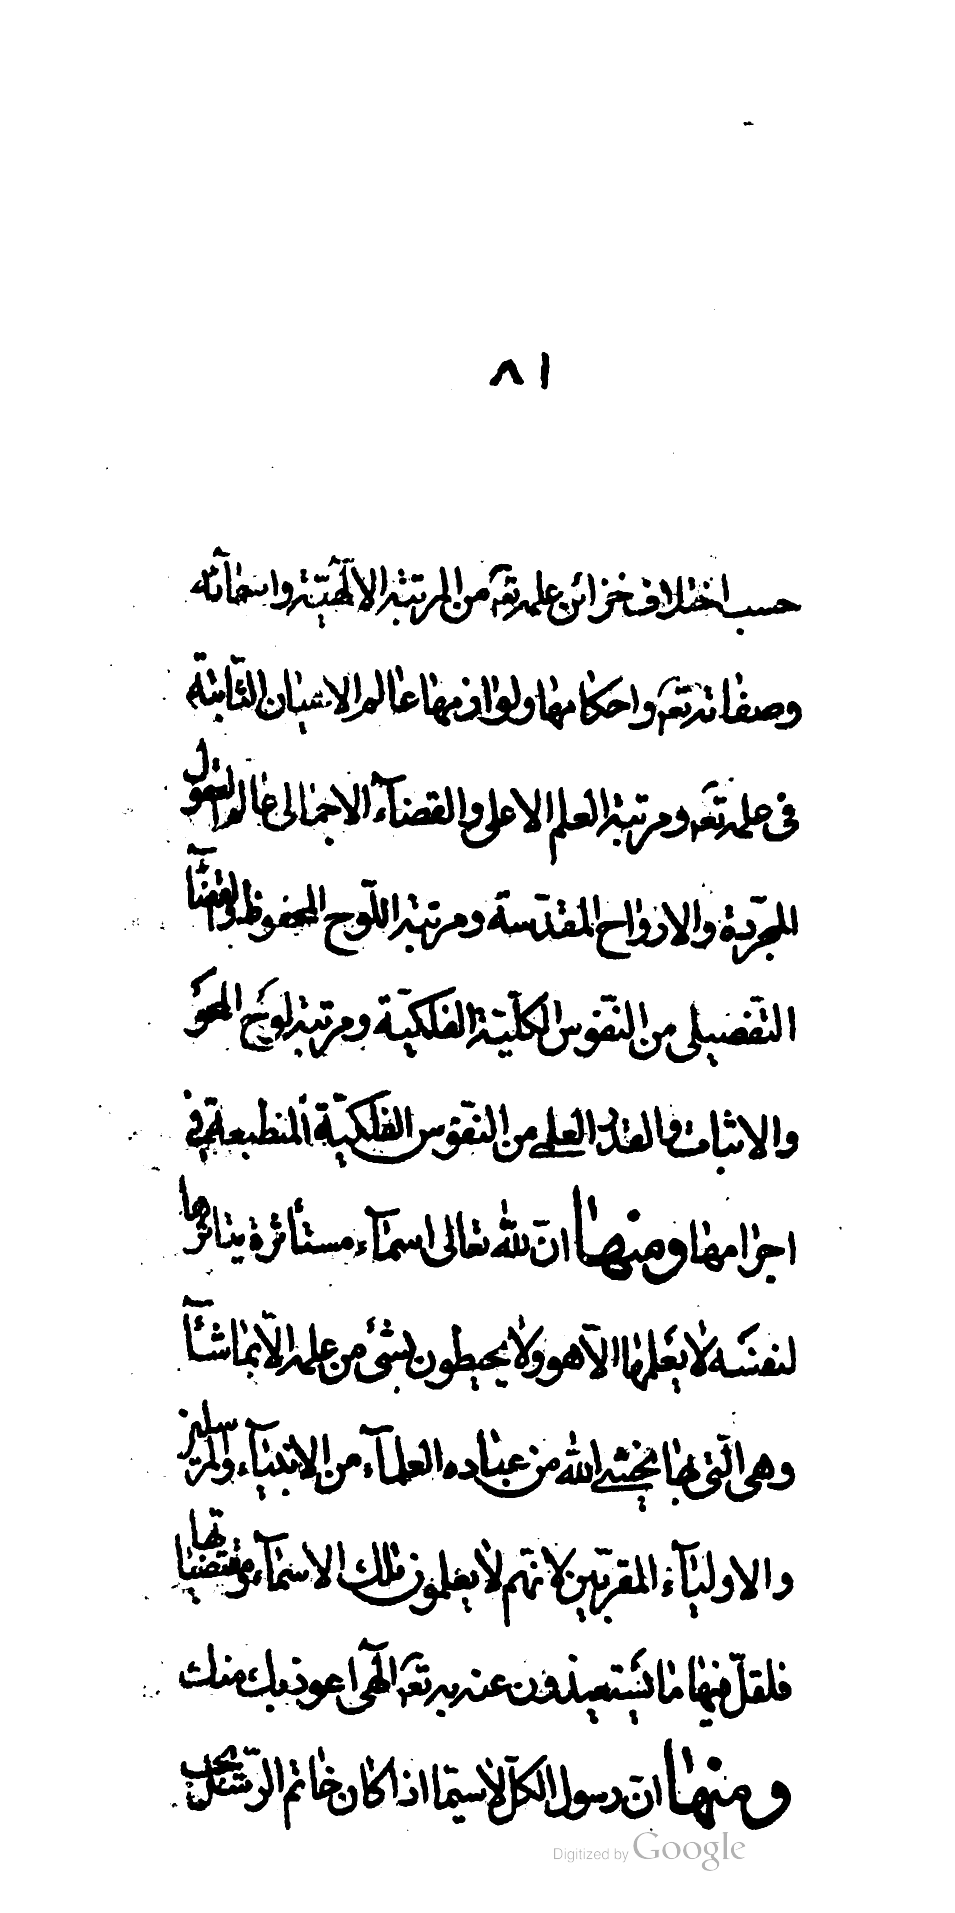 ٨١
حسب اختلاف خزائن علمه تعه من المرتبة الالٓهيّة واسمائه
وصفاته تعه واحكامها ولوازمها عالم الاعيان الثابتة
فى علمه تعه ومرتبة العلم الاعلى والقضآء الاجمالى عالم العقول
المجرّدة والارواح المقدّسة ومرتبة اللّوح المحفوظ والقضآء
التّفصيلى من النّفوس الكلّيّة الفلكيّة ومرتبة لوح المحو
والاثبات والقدر العلمى من النّفوس الفلكيّة المنطبعة فى
اجرامها ومنها انّ لله تعالى اسمآء مستأثرة يتاثرها
لنفسه لا يعلمها الّا هو ولا يحيطون بشئ من علمه الّا بما شآء
وهى الّتى بها يخشى الله من عباده العلمآء من الانبيآء والمرسلين
والاوليآء المقربين لانّهم لا يعلمون تلك الاسمآء ومقتضياتها
فلقلّ فيها ما يستعيذون عنه به تعه الٓهى اعوذ بك منك
ومنها انّ رسول الكلّ لا سيّما اذا كان خاتم الرّسل يجب
Digitized by Google